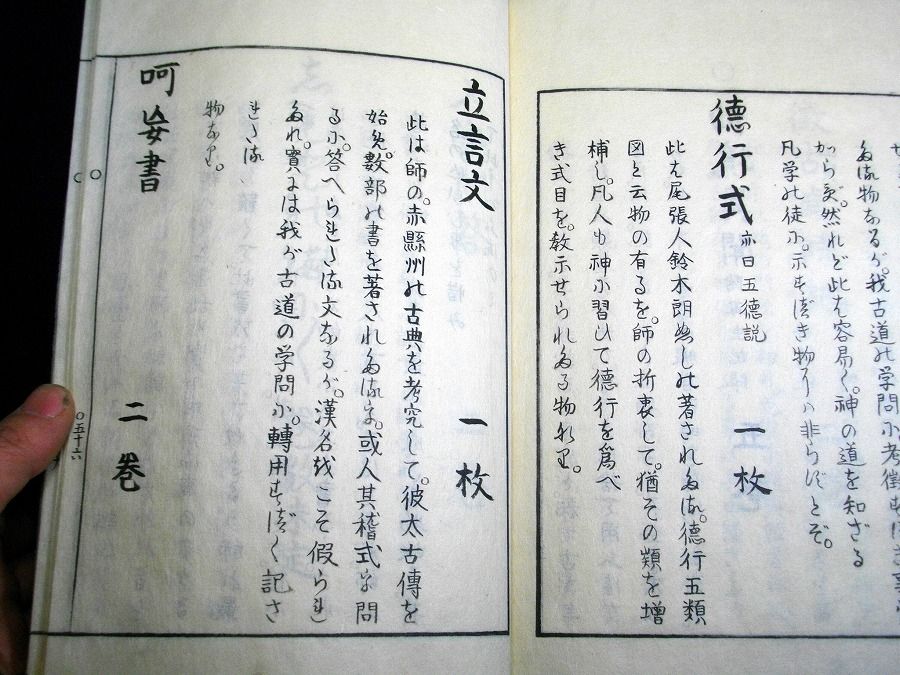 ゐる物なるが。我古道の学問に考徴すべき事
から受。然れど此は容易く。神の道を知ざる
凡学の徒に。示すべき物には非らずとぞ。
德行式 亦曰五德説 一枚
此は尾張人鈴木朗ぬしの著されたる。德行五類
図と云物の有るを。師の折衷して。猶その類を増
補し。凡人も神に習ひて德行を爲べ
き式目を。教示せられたる物なり。
立言文 一枚
此は師の。赤縣州の古典を考究して。彼太古傳を
始免。數部の書を著されたるを。或人其稽式を問
るに。答へられたる文なるが。漢名をこそ假られ
たれ。實には我が古道の学問に。轉用すべく記さ
れたる
物なり。
呵妄書 二巻
〇五十六